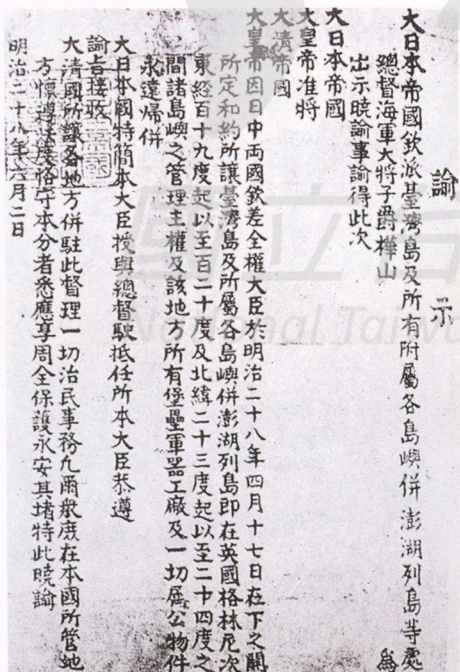 諭示
大日本帝國欽派臺灣島及所有附屬各島嶼併澎湖列島等處
總督海軍大將子爵樺山 為
出示曉諭事諭得此次
大日本帝國
大皇帝准將
大清帝國
大皇帝因日中両國欽差全權大臣於明治二十八年四月十七日在下之關
所定和約所讓臺灣島及所屬各島嶼併澎湖列島即在英國格林尼次
東經百十九度起以至百二十度及北緯二十三度起以至二十四度之
間諸島嶼之管理主權及該地方所有堡壘軍器工廠及一切屬公物件
永遠歸併
大日本國特簡本大臣授與總督駛抵任所本大臣恭遵
諭旨接收
大清國所讓各地方併駐此督理一切治民事務凡爾衆庶在本國所管地
方懍遵法度恪守本分者悉應享周全保護永安其堵特此曉諭
明治二十八年六月二日
國立臺
National Taiwa